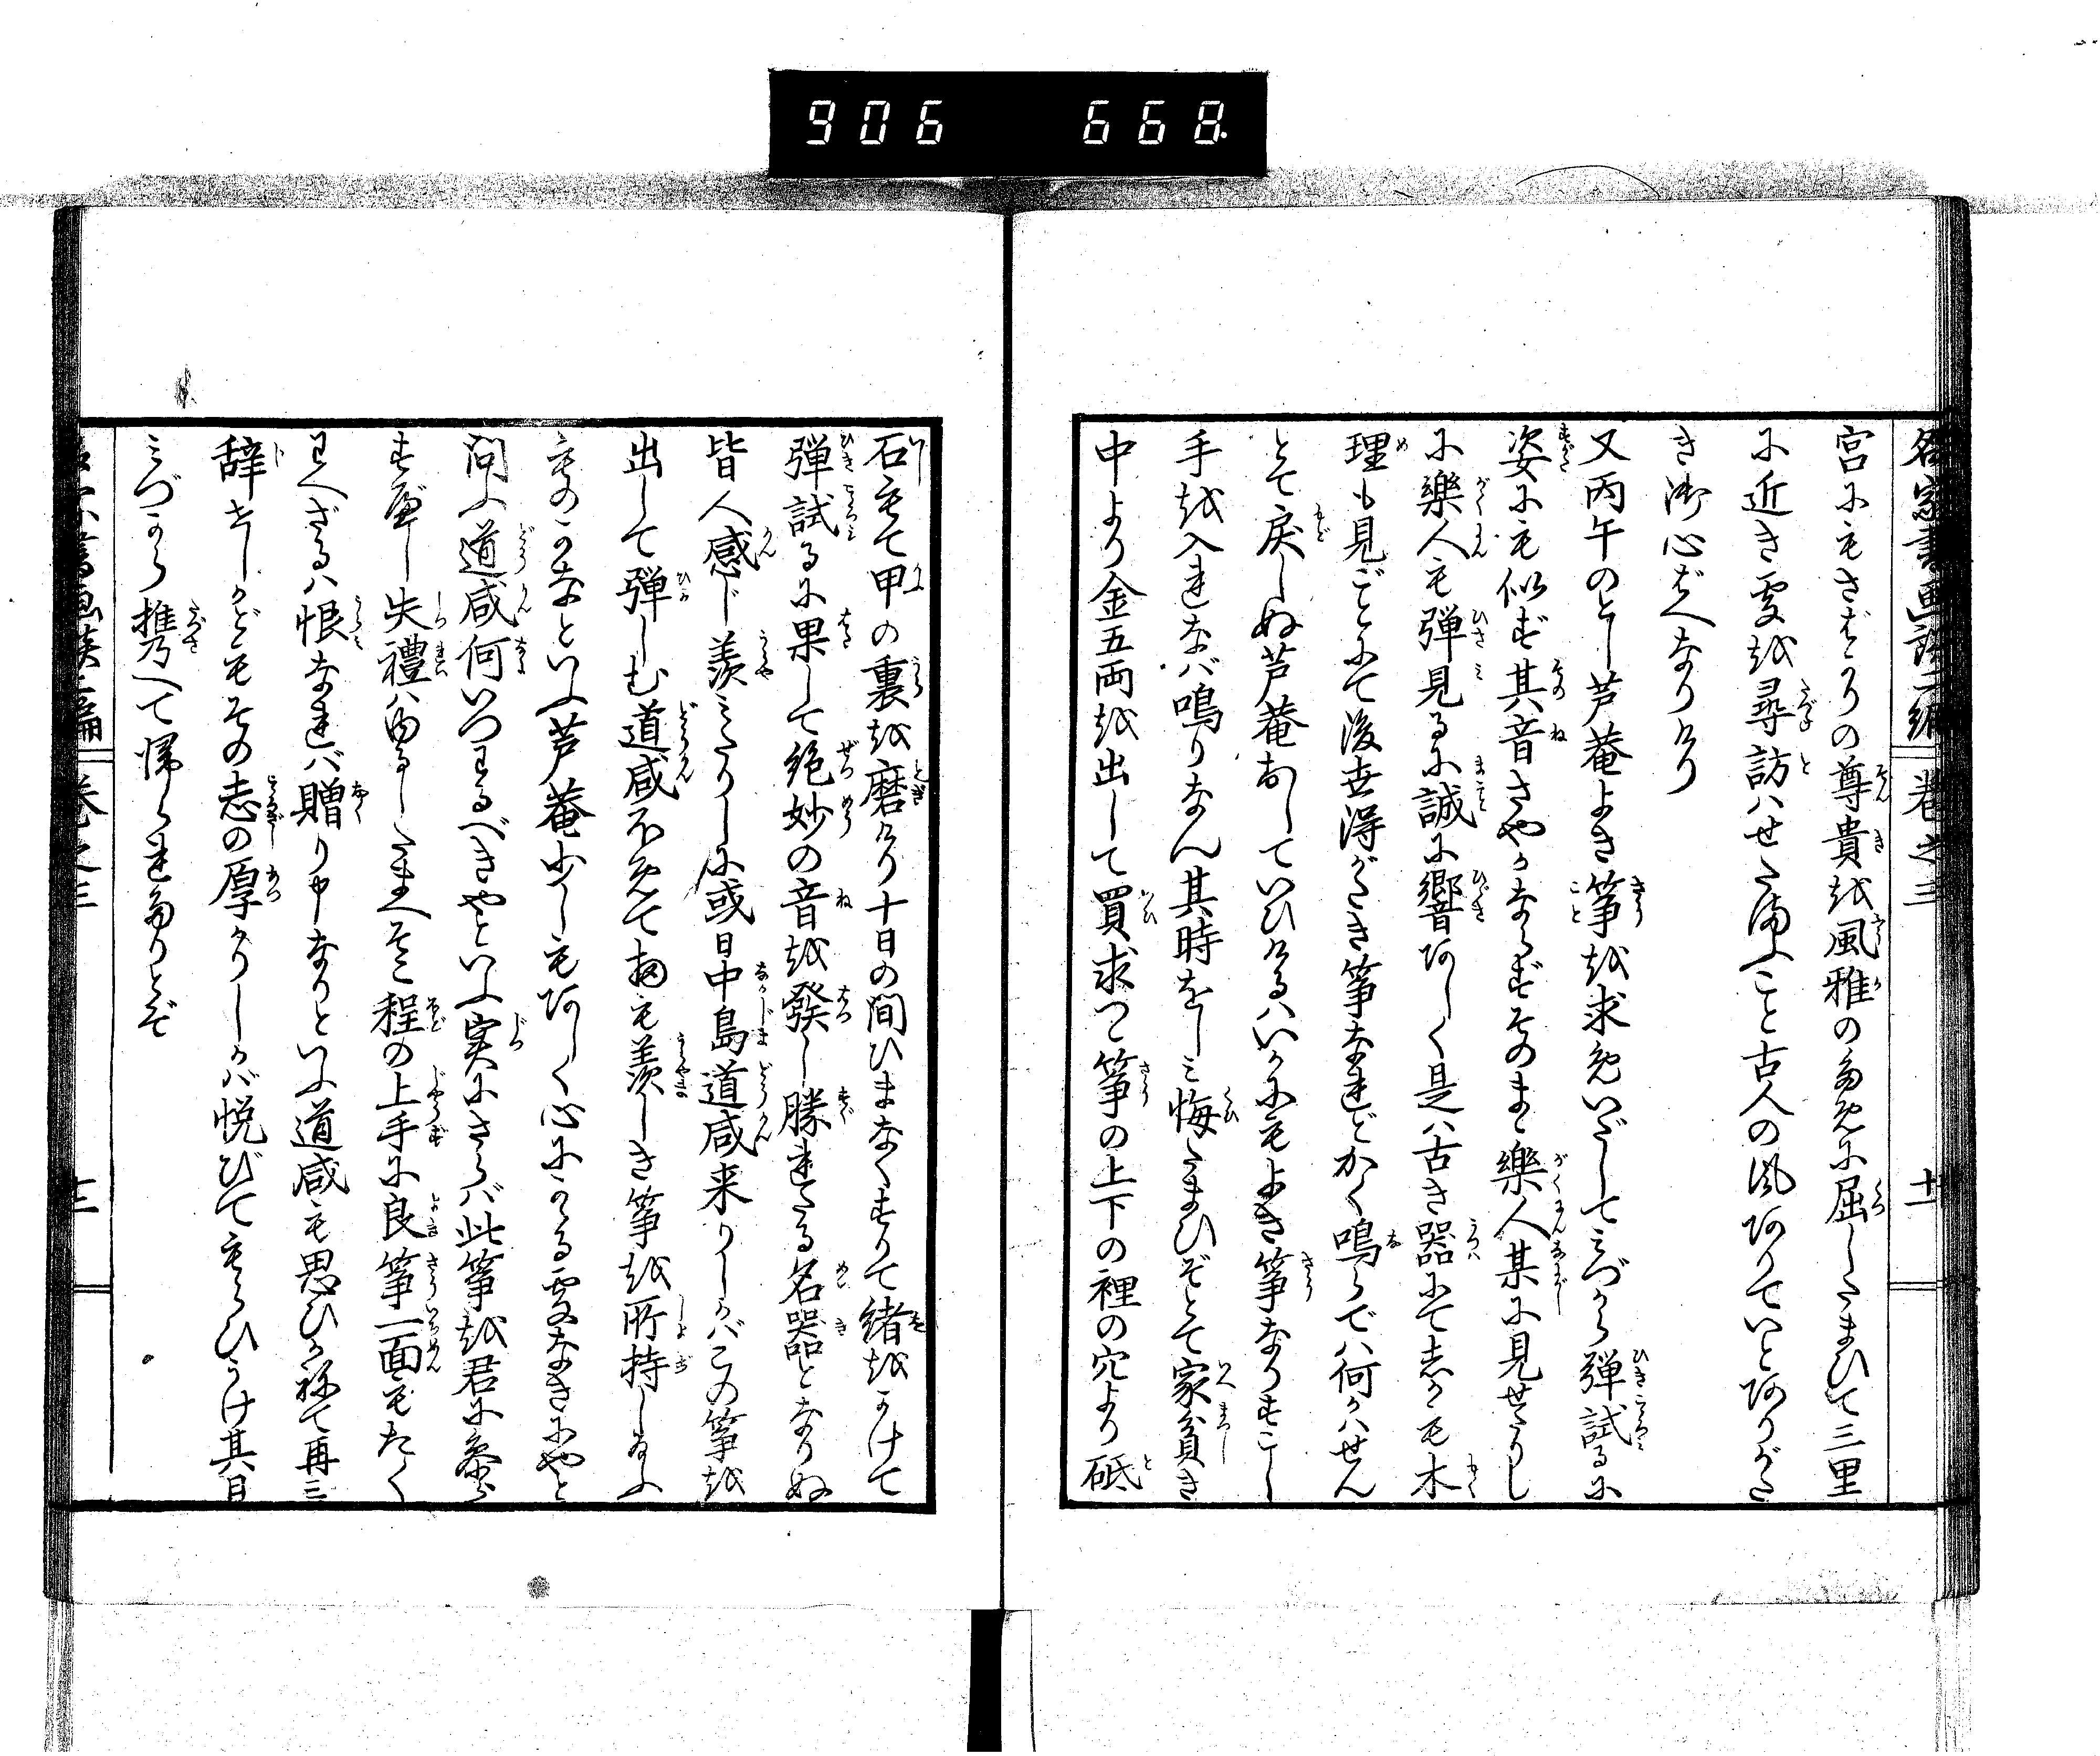 906 668
名家書画談二編 巻之三 十二
宮にもさばかりの尊貴を風雅のために屈したまひて三里
に近き處を尋訪はせたまふこと古人の風ありていとありがた
き御心ばへなりけり
又丙午のとし芦菴よき箏を求めいだしてみづから弾試るに
姿にも似ず其音さやかならずそのまゝ樂人某に見せたりし
に樂人も弾見るに誠に響あしく是は古き器にて志かも木
理も見ごとにて後世得がたき箏なれどかく鳴らでは何かはせん
とて戻しぬ芦菴おしていひけるはいかにもよき箏なりすこし
手を入れなば鳴りなん其時をしみ悔たまひぞとて家貧き
中より金五両を出して買求つ箏の上下の裡の穴より砥
石もて甲の裏を磨けり十日の間ひまなくすりて緒をかけて
弾試るに果して絶妙の音を發し勝れたる名器となりぬ
皆人感じ羨みたりしに或日中島道咸来りしかばこの箏を
出して弾しむ道咸不覚て扨も羨しき箏を所持し給ふ
ものかなといふ芦菴少しもあしく心にかゝる處なきにやと
問ふ道咸何いつはるべきやといふ実にさらば此箏を君に参ら
すべし失禮はゆるしたまへそこ程の上手に良箏一面もたく
はへざるは恨なれば贈り申なりといふ道咸も思ひかねて再三
辞せしかどもその志の厚かりしかば悦びてもらひうけ其日
みづから携へて帰られたりとぞ
巻之三